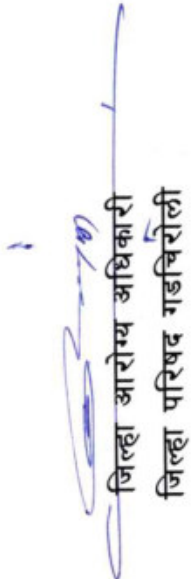 जिल्हा आरोग्य अधिकारी
जिल्हा परिषद गडचिरोली